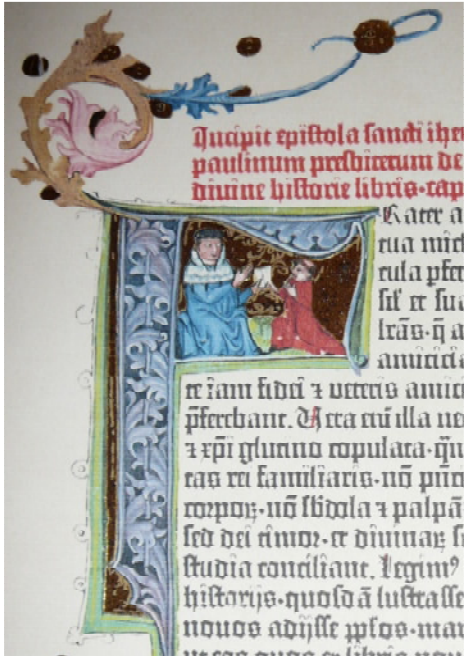 Incipit epistola sancti ihe
paulinum presbiterum de
divine historie libris·cap
Rater a
tua mich
cula pfer
sil' et sua
lrās·q̄ a
amicicia
et iam fidei ⁊ veteris amici
pferebant. Vera enī illa ne
⁊ xp̄i glutino copulata·qu
tas rei familiaris·nō pn̄ci
corpoꝝ·nō sbdola ⁊ palpā
sed dei timor·et divinaꝝ s
studia conciliant. Legim⁹
historijs·quosdā lustrasse
novos adijsse pplos·mar